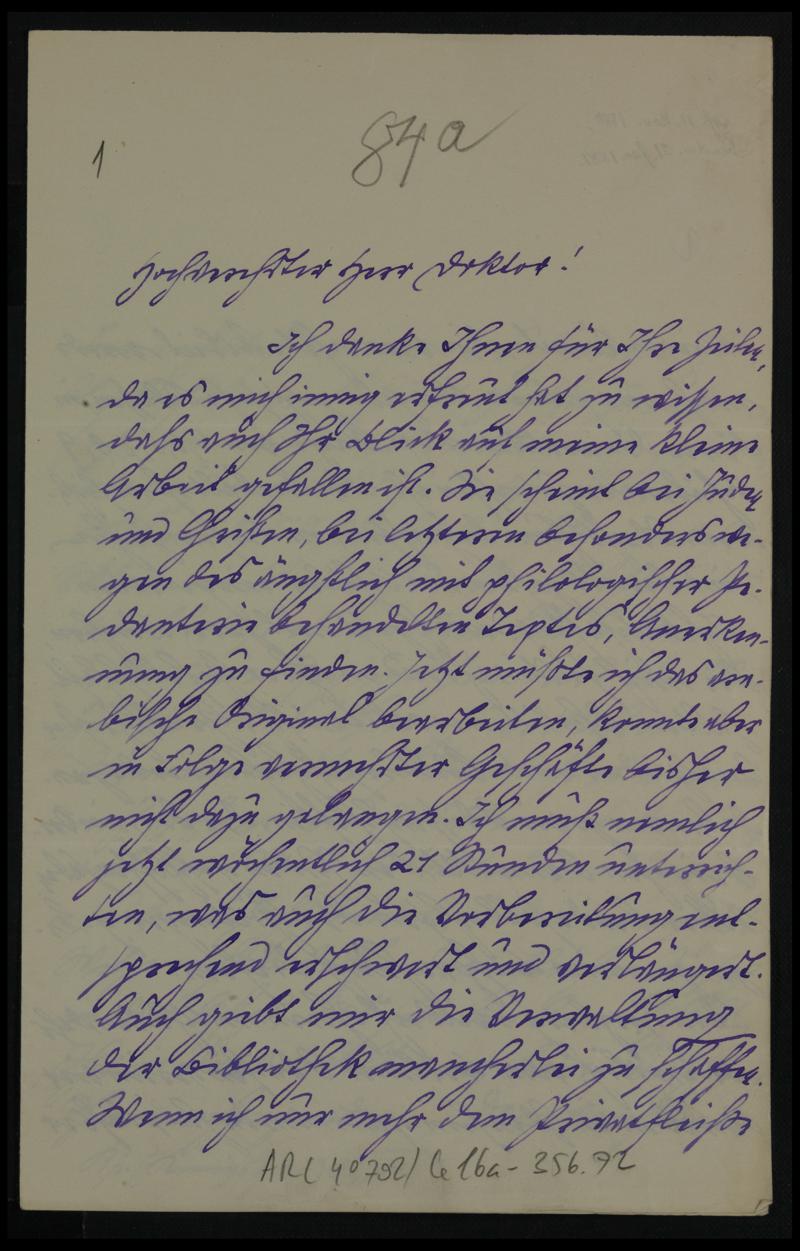 84a
1
Hochverehrter Herr Doktor!
Ich danke Ihnen für Ihre Zeilen,
da es mich innig erfreut hat zu wissen,
dass auch Ihr Blick auf meine kleine
Arbeit gefallen ist. Sie scheint bei Juden
und Christen, bei letzteren besonders we-
gen des ängstlich mit philologischer Pe-
danterie behandelten Textes, Anerken-
nung zu finden. Jetzt müßte ich das ara-
bische Original bearbeiten, konnte aber
in Folge vermehrter Geschäfte bisher
nicht dazu gelangen. Ich muß nemlich
jetzt wöchentlich 21 Stunden unterrich-
ten, was auch die Vorbereitung ent-
sprechend erschwert und verlängert.
Auch giebt mir die Verwaltung
der Bibliothek mancherlei zu schaffen.
Wenn ich nur mehr dem Privatfleiße
ARC 4° 792/ Ce 16a - 356.92